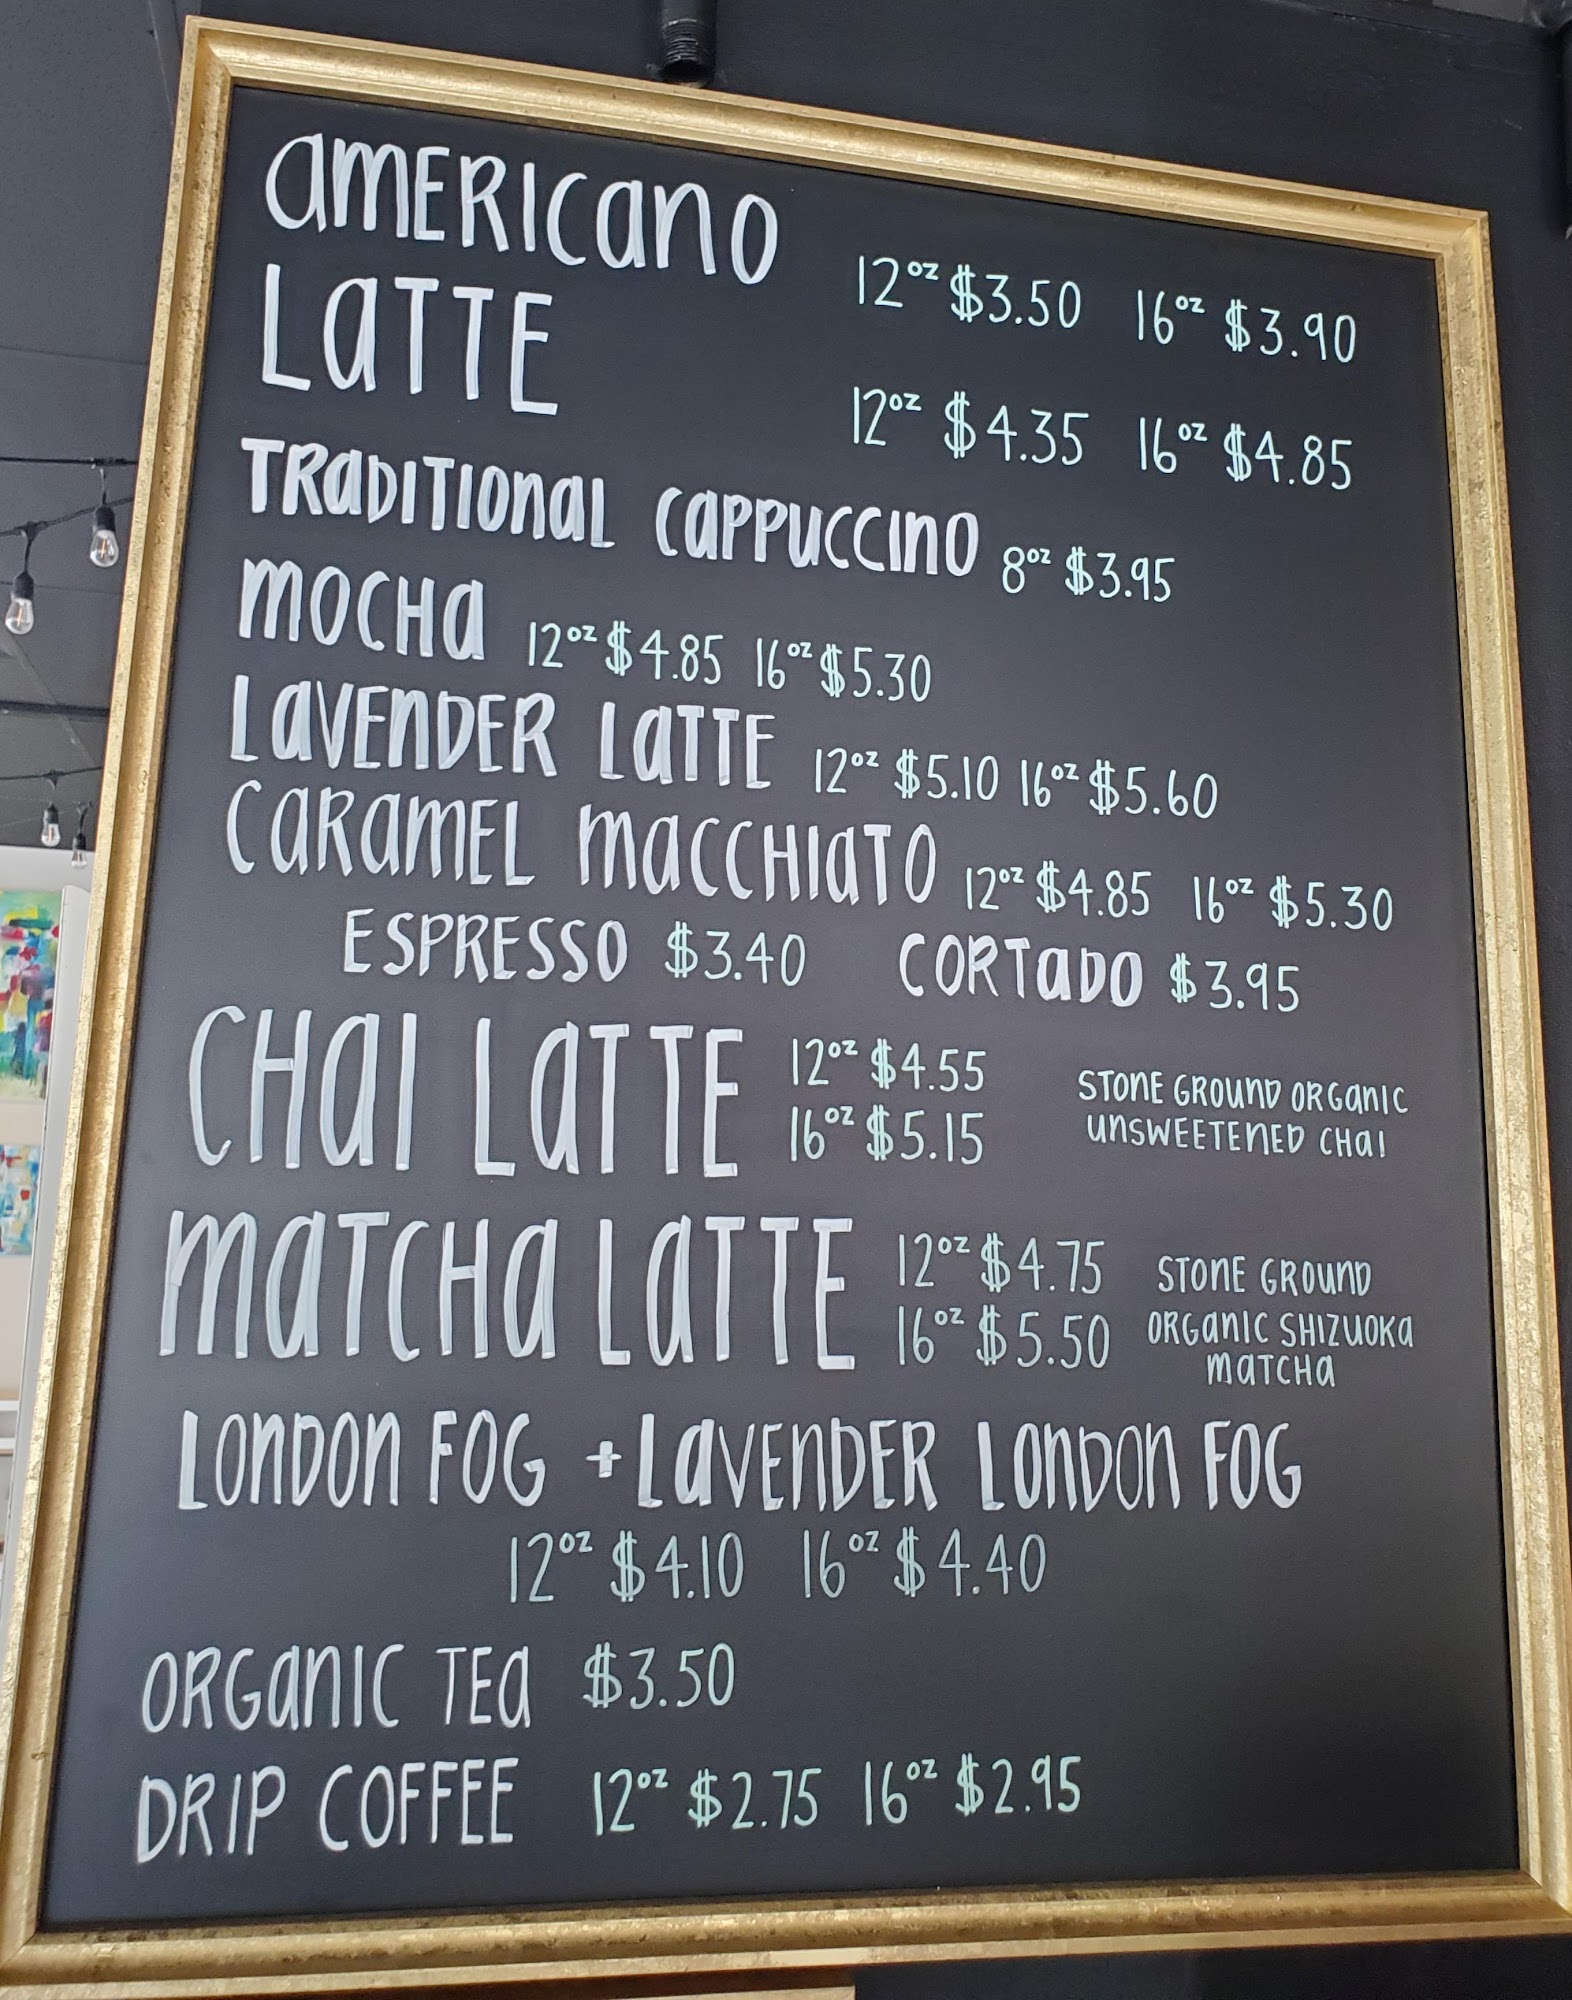 AMERICANO 12oz $3.50 16oz $3.90
LATTE 12oz $4.35 16oz $4.85
TRADITIONAL CAPPUCCINO 8oz $3.95
MOCHA 12oz $4.85 16oz $5.30
LAVENDER LATTE 12oz $5.10 16oz $5.60
CARAMEL MACCHIATO 12oz $4.85 16oz $5.30
ESPRESSO $3.40 CORTADO $3.95
CHAI LATTE
12oz $4.55
16oz $5.15
STONE GROUND ORGANIC
UNSWEETENED CHAI
MATCHA LATTE
12oz $4.75
16oz $5.50
STONE GROUND
ORGANIC SHIZUOKA
MATCHA
LONDON FOG + LAVENDER LONDON FOG
12oz $4.10 16oz $4.40
ORGANIC TEA $3.50
DRIP COFFEE 12oz $2.75 16oz $2.95